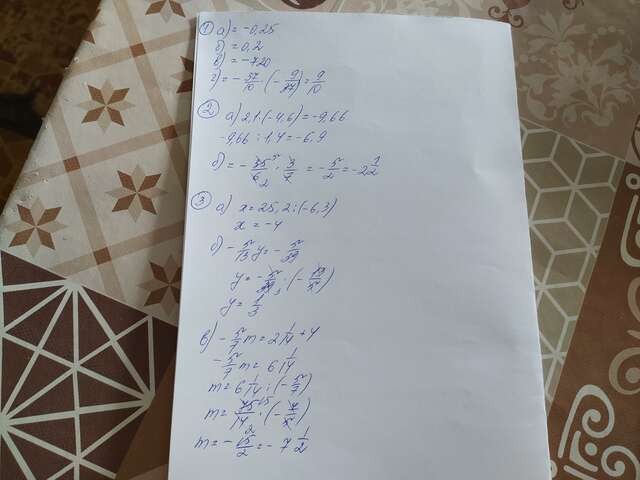 ① а) = -0,25
б) = 0,2
в) = -720
г) = -57/10 · (-9/57) = 9/10
② а) 2,1·(-4,6) = -9,66
-9,66 : 1,4 = -6,9
б) = -35⁵/6₂ · 3/7 = -5/2 = -2 1/2
③ а) x = 25,2 : (-6,3)
x = -4
б) -5/13 y = -5/39
y = -5/39₃ : (-13/5)
y = 1/3
в) -5/7 m = 2 1/14 + 4
-5/7 m = 6 1/14
m = 6 1/14 : (-5/7)
m = 75¹⁵/14₂ · (-7/5)
m = -15/2 = -7 1/2